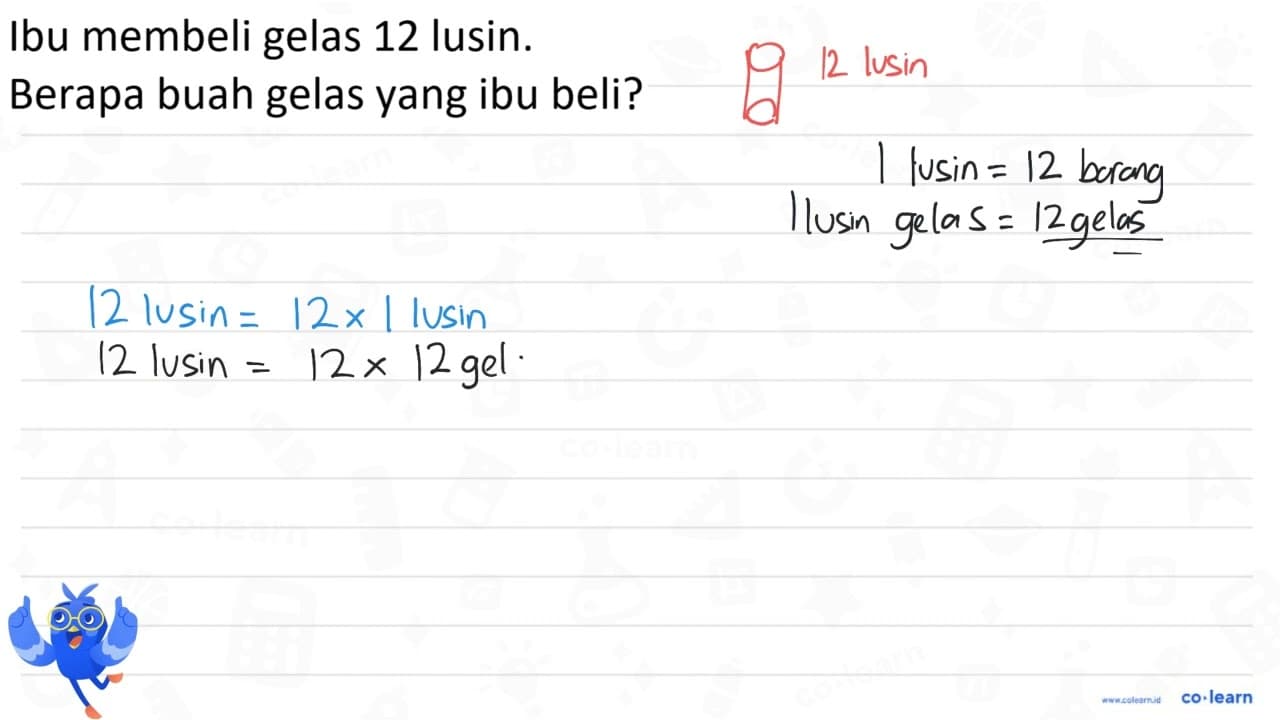 Ibu membeli gelas 12 lusin.
Berapa buah gelas yang ibu beli?
12 lusin
1 lusin = 12 barang
1 lusin gelas = 12 gelas
12 lusin = 12 x 1 lusin
12 lusin = 12 x 12 gel
www.colearn.id co·learn